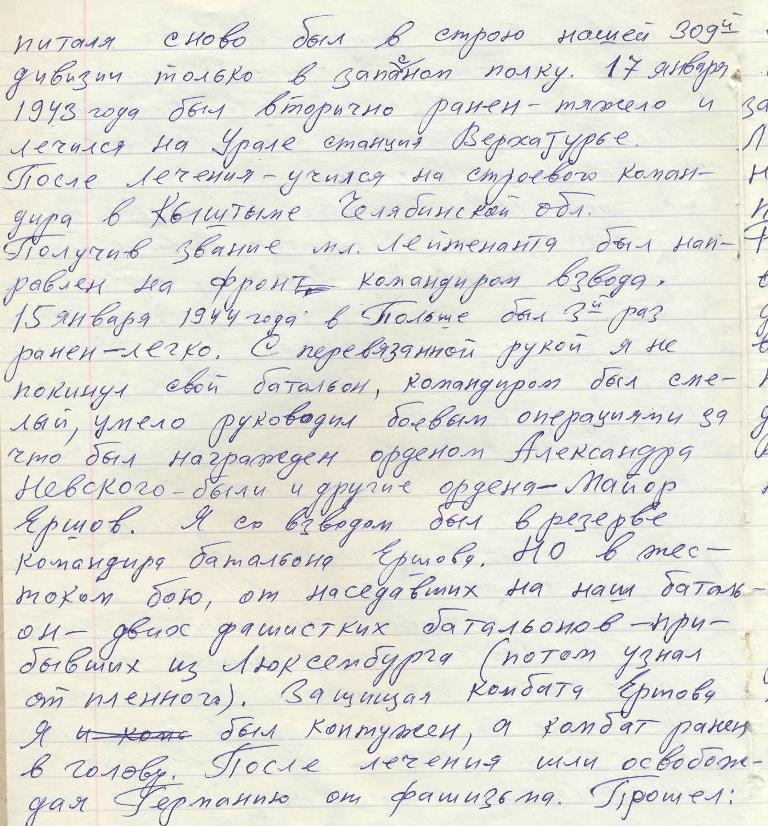 питаля сново был в строю нашей 309й
дивизии только в запасном полку. 17 января
1943 года был вторично ранен - тяжело и
лечился на Урале станция Верхатурье.
После лечения - учился на строевого коман-
дира в Кыштыме Челябинской обл.
Получив звание мл. лейтенанта был нап-
равлен на фронт командиром взвода.
15 января 1944 года в Польше был 3й раз
ранен - легко. С перевязанной рукой я не
покинул свой батальон, командиром был сме-
лый, умело руководил боевым операциями за
что был награжден орденом Александра
Невского - были и другие ордена - Майор
Ершов. Я со взводом был в резерве
командира батальона Ершова. Но в жес-
током бою, от наседавших на наш баталь-
он - двих фашистких батальонов - при-
бывших из Люксембурга (потом узнал
от пленного). Защищая комбата Ершова
Я был контужен, а комбат ранен
в голову. После лечения шли освобож-
дая Германию от фашизьма. Прошел: